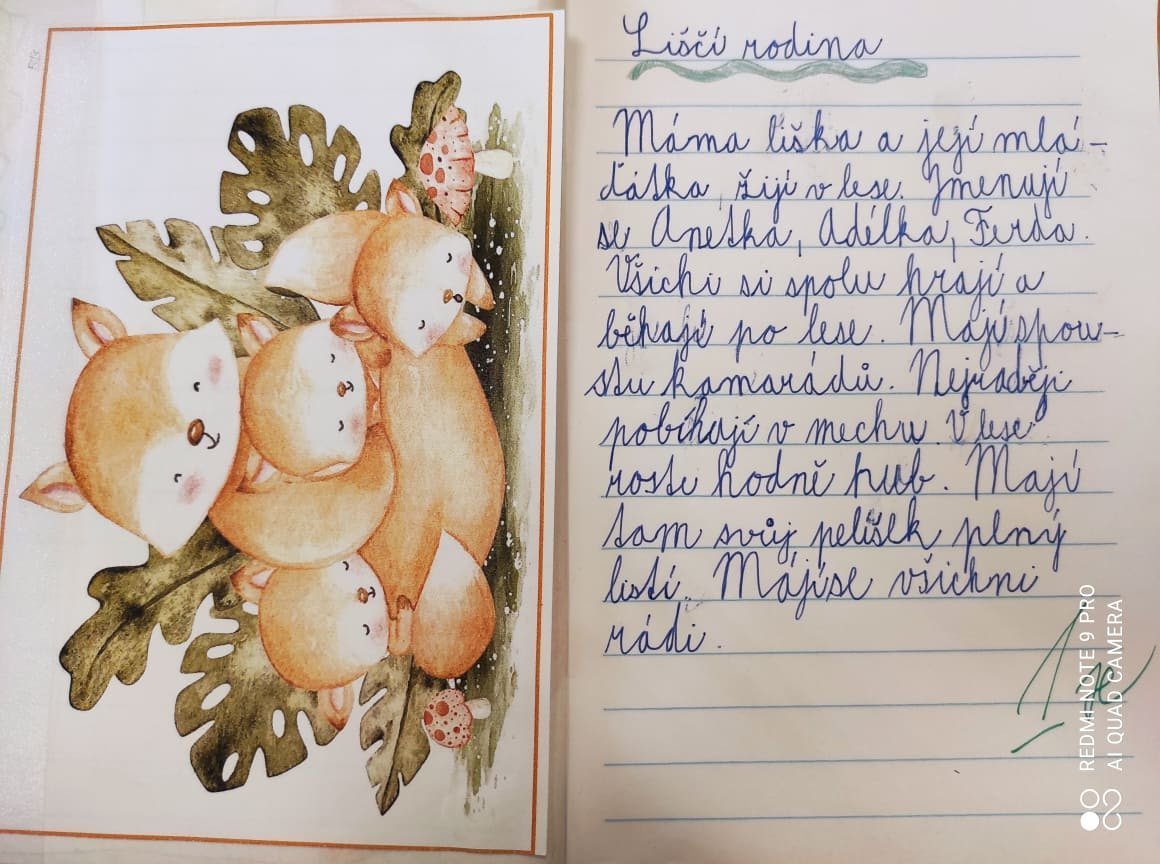 Liščí rodina
Máma liška a její mlá-
ďátka, žijí v lese. Jmenují
se Anetka, Adélka, Ferda.
Všichi si spolu hrají a
běkají po lese. Mají spou-
stu kamarádů. Nejraději
pobíhají v mechu. V lese
roste hodně hub. Mají
tam svůj pelíšek plný
listí. Májí se všichni
rádi.
1
REDMI NOTE 9 PRO
AI QUAD CAMERA